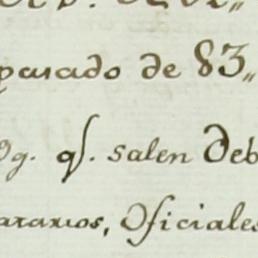 parado de 83,,
Og. qͤ. salen Deb
ararios, Oficiales